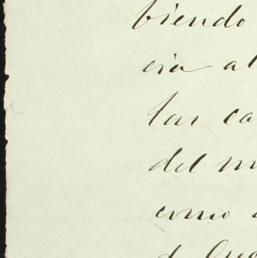 biendo
cia al
las ca
del m
como
de Que